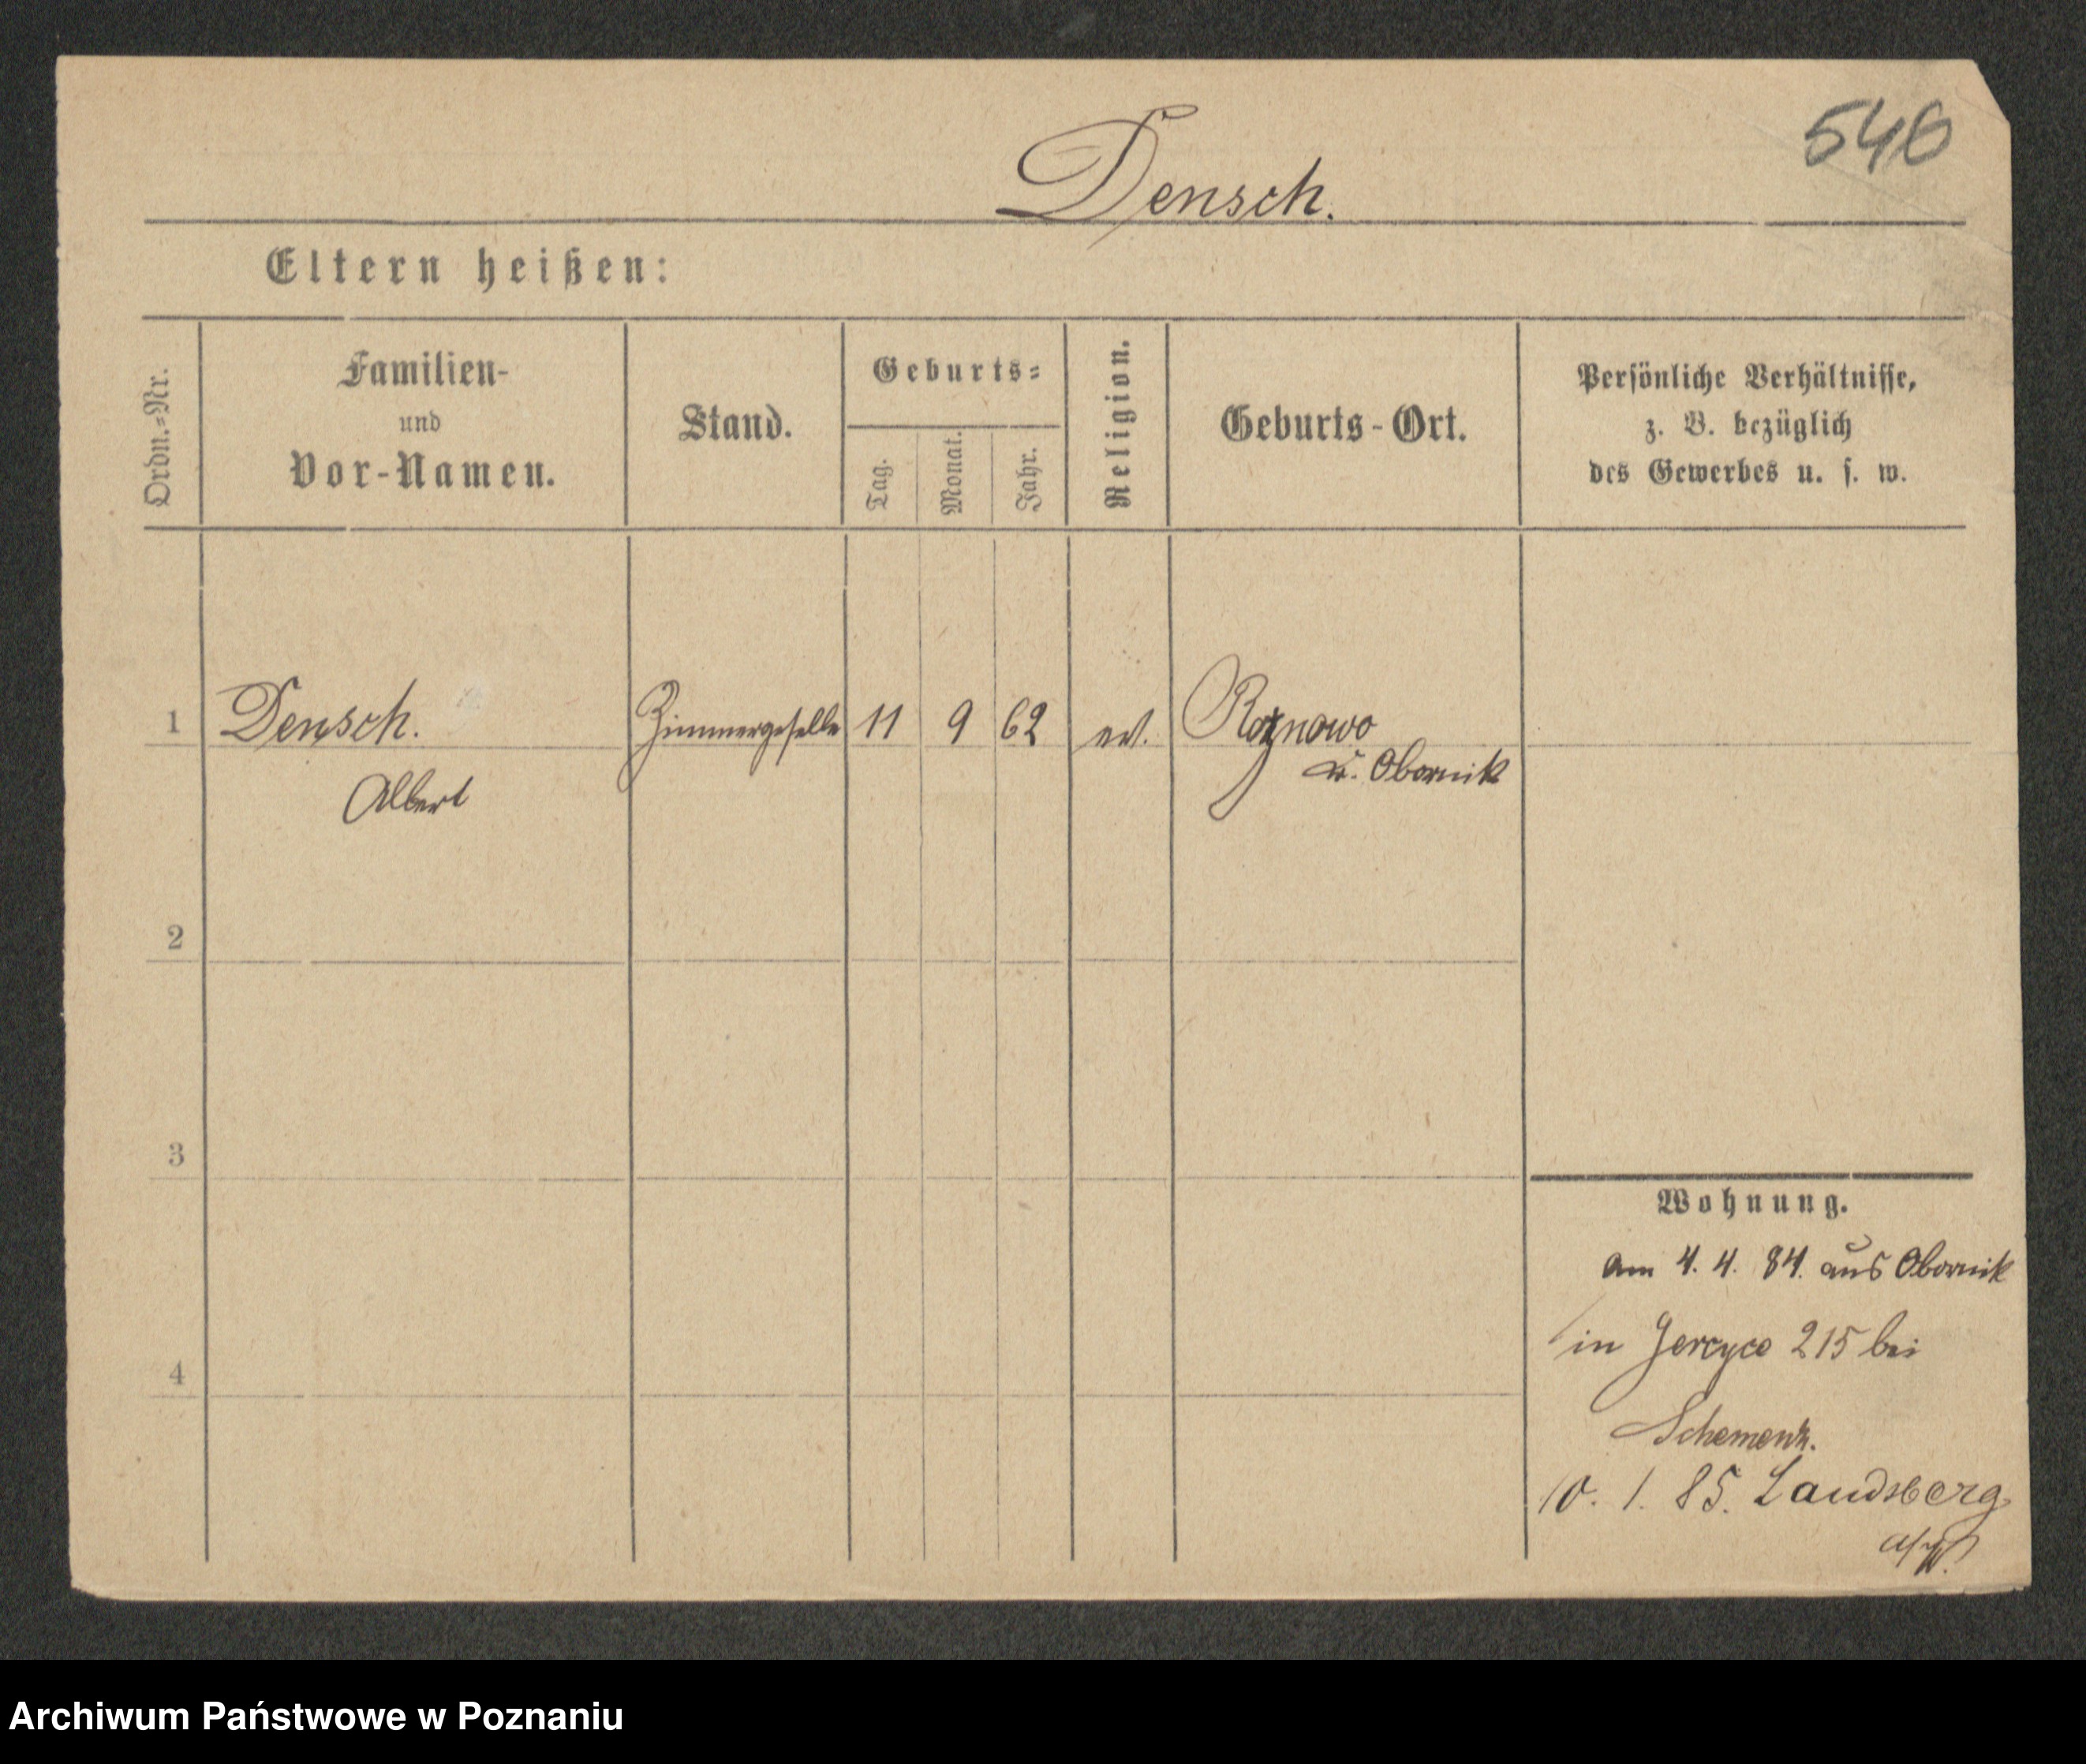 546
Densch.
Eltern heißen:
Ordn.=Nr.
Familien-
und
Vor-Namen.
Stand.
Geburts=
Tag.
Monat.
Jahr.
Religion.
Geburts-Ort.
Persönliche Verhältnisse,
z. B. bezüglich
des Gewerbes u. s. w.
1 Densch. Zimmergeselle 11 9 62 ev. Roznowo
Albert Kr. Obornik
2
3
4
Wohnung.
am 4. 4. 84. aus Obornik
in Jercyce 215 bei
Schemenk.
10. 1. 85. Landsberg
a/W.
Archiwum Państwowe w Poznaniu